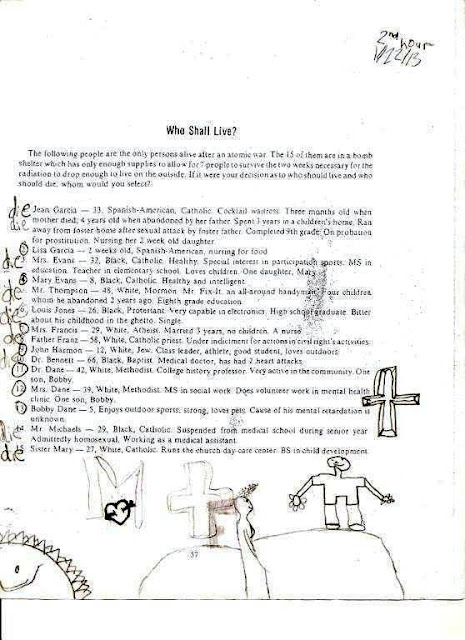 2nd hour
1/12/13
Who Shall Live?
The following people are the only persons alive after an atomic war. The 15 of them are in a bomb
shelter which has only enough supplies to allow for 7 people to survive the two weeks necessary for the
radiation to drop enough to live on the outside. If it were your decision as to who should live and who
should die, whom would you select?
die Jean Garcia — 33, Spanish-American, Catholic. Cocktail waitress. Three months old when
mother died; 4 years old when abandoned by her father. Spent 3 years in a children's home. Ran
away from foster home after sexual attack by foster father. Completed 9th grade. On probation
for prostitution. Nursing her 2 week old daughter
Lisa Garcia — 2 weeks old, Spanish-American, nursing for food
die Mrs. Evans — 32, Black, Catholic. Healthy. Special interest in participation sports. MS in
education. Teacher in elementary school. Loves children. One daughter, Mary
Mary Evans — 8, Black, Catholic. Healthy and intelligent
die Mr. Thompson — 48, White, Mormon. Mr. Fix-It, an all-around handyman. Four children
whom he abandoned 2 years ago. Eighth grade education.
Louis Jones — 26, Black, Protestant. Very capable in electronics. High school graduate. Bitter
about his childhood in the ghetto. Single.
Mrs. Francis — 29, White, Atheist. Married 3 years, no children. A nurse
die Father Franz — 58, White, Catholic priest. Under indictment for actions in civil right's activities.
John Harmon — 12, White, Jew. Class leader, athlete, good student, loves outdoors
Dr. Bennett — 66, Black, Baptist. Medical doctor, has had 2 heart attacks.
11 Dr. Dane — 42, White, Methodist. College history professor. Very active in the community. One
son, Bobby.
12 Mrs. Dane — 39, White, Methodist. MS in social work. Does volunteer work in mental health
clinic. One son, Bobby.
13 Bobby Dane — 5, Enjoys outdoor sports, strong, loves pets. Cause of his mental retardation is
unknown.
die Mr. Michaels — 29, Black, Catholic. Suspended from medical school during senior year
Admittedly homosexual. Working as a medical assistant.
die Sister Mary — 27, White, Catholic. Runs the church day-care center. BS in child development
M
37